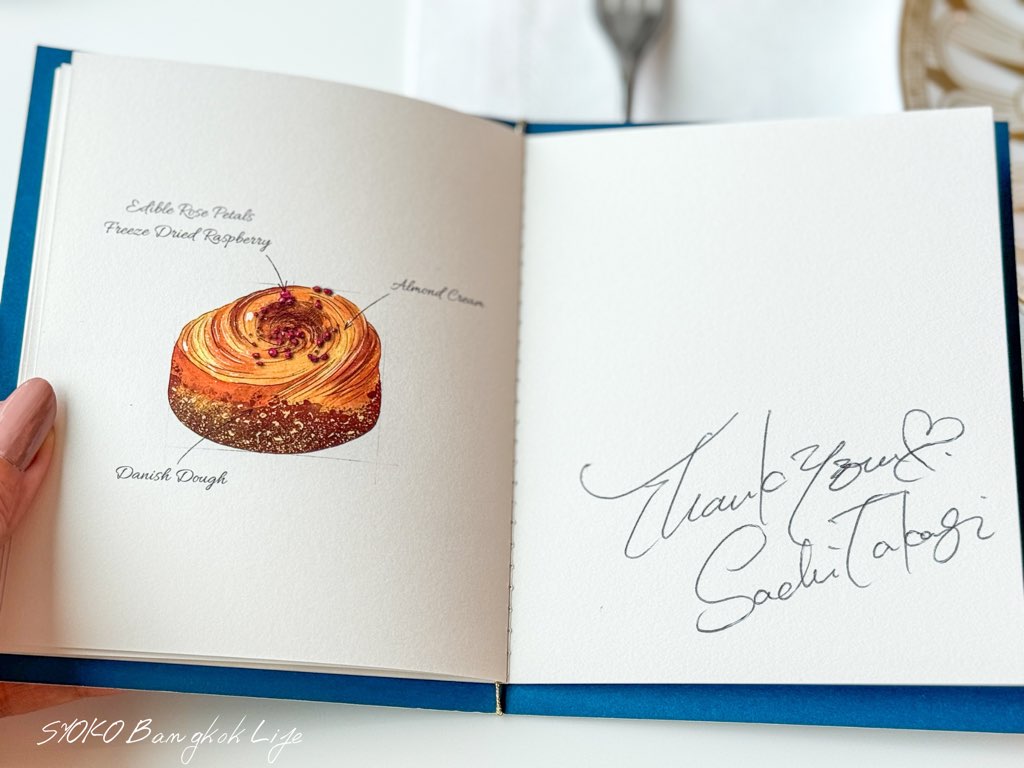 Edible Rose Petals
Freeze Dried Raspberry
Almond Cream
Danish Dough
Thank You
Sachi Takagi
SYOKO Bangkok Life